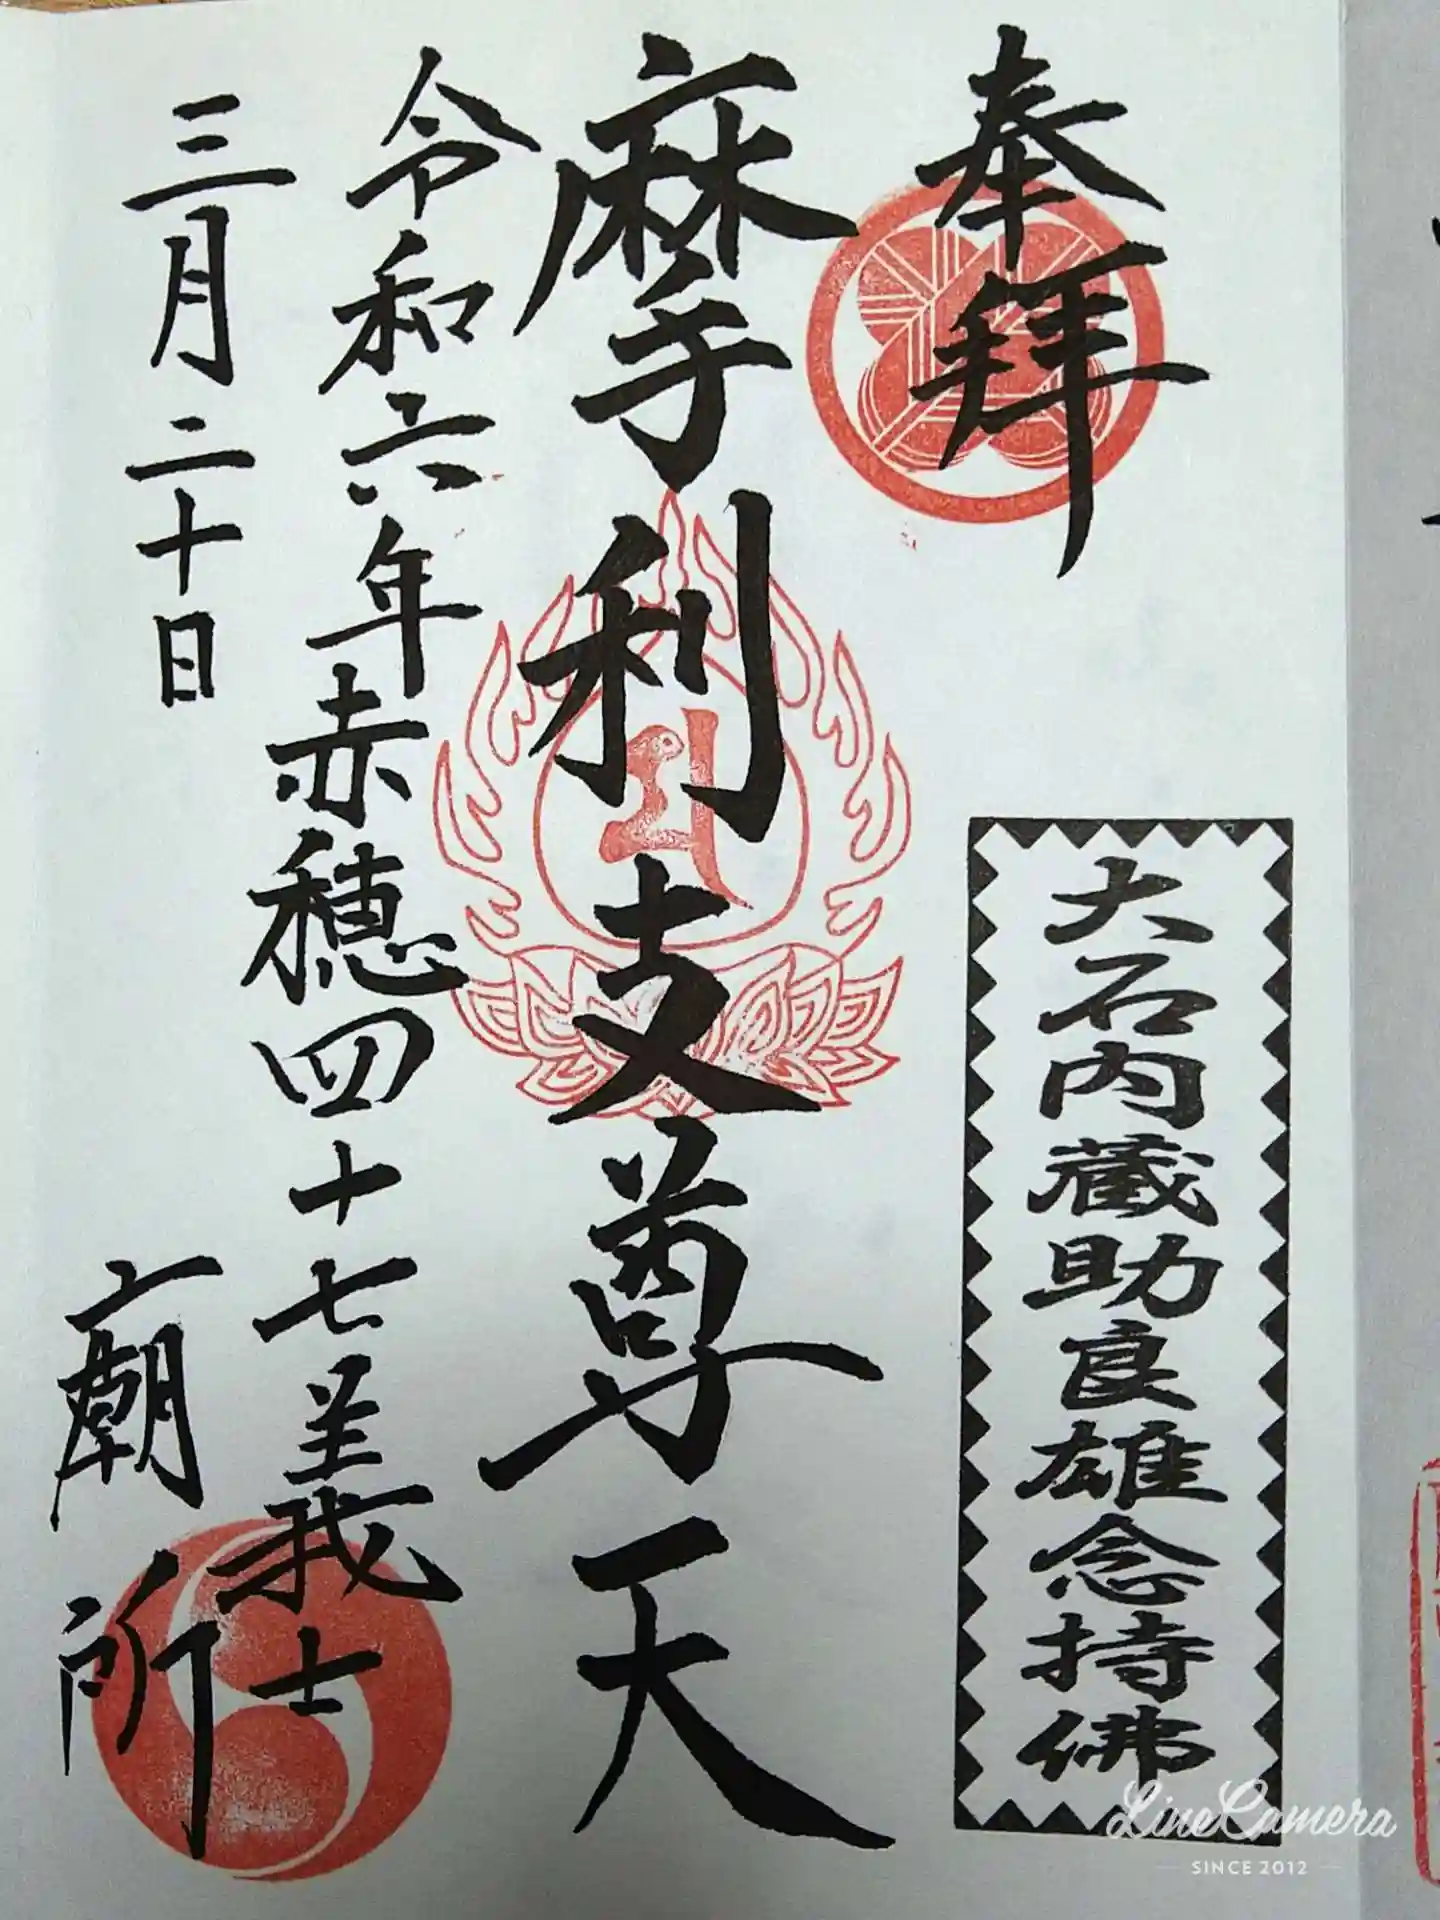 奉拝
大石内蔵助良雄念持佛
摩利支尊天
令和六年赤穂四十七義士
三月二十日
廟所
LineCamera
SINCE 2012